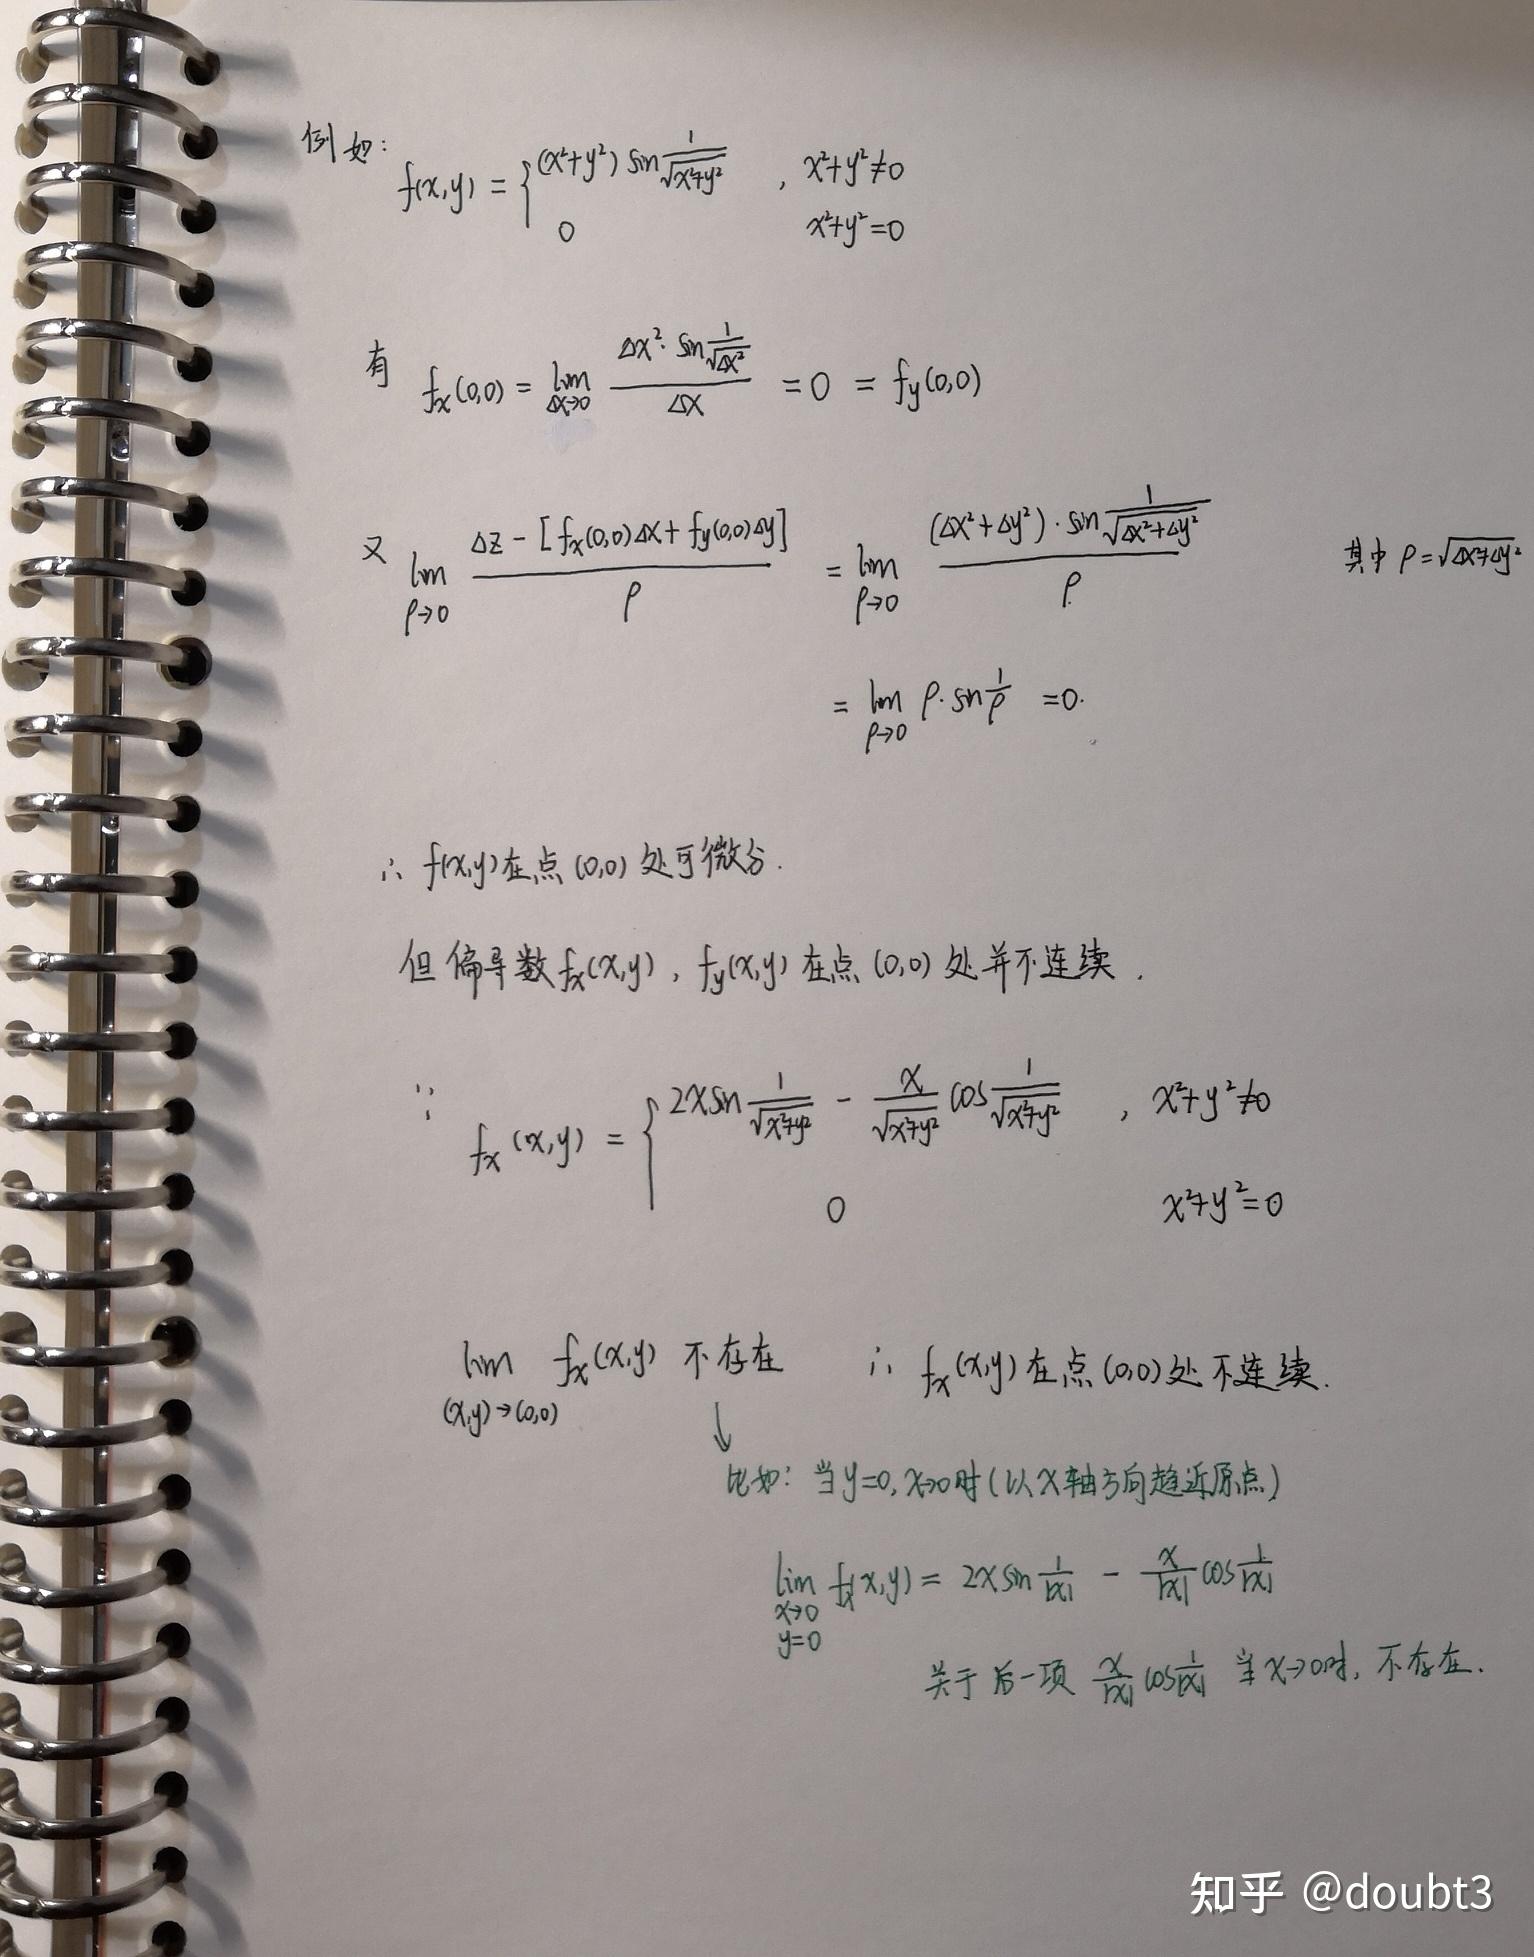 例如：
f(x,y) = { (x²+y²) sin 1/√(x²+y²) , x²+y²≠0
0 x²+y²=0
有 fx(0,0) = lim Δx→0 (Δx²·sin 1/√(Δx²))/Δx = 0 = fy(0,0)
又 lim ρ→0 (Δz - [fx(0,0)Δx + fy(0,0)Δy])/ρ = lim ρ→0 ((Δx²+Δy²)·sin 1/√(Δx²+Δy²))/ρ 其中 ρ=√(Δx²+Δy²)
= lim ρ→0 ρ·sin 1/ρ = 0.
∴ f(x,y)在点(0,0)处可微分.
但偏导数fx(x,y), fy(x,y)在点(0,0)处并不连续.
∵ fx(x,y) = { 2x sin 1/√(x²+y²) - x/√(x²+y²) cos 1/√(x²+y²) , x²+y²≠0
0 x²+y²=0
lim (x,y)→(0,0) fx(x,y) 不存在 ∴ fx(x,y)在点(0,0)处不连续.
↓
比如：当y=0, x→0时(以x轴方向趋近原点)
lim x→0 y=0 fx(x,y) = 2x sin 1/|x| - x/|x| cos 1/|x|
关于后一项 x/|x| cos 1/|x| 当x→0时, 不存在.
知乎 @doubt3